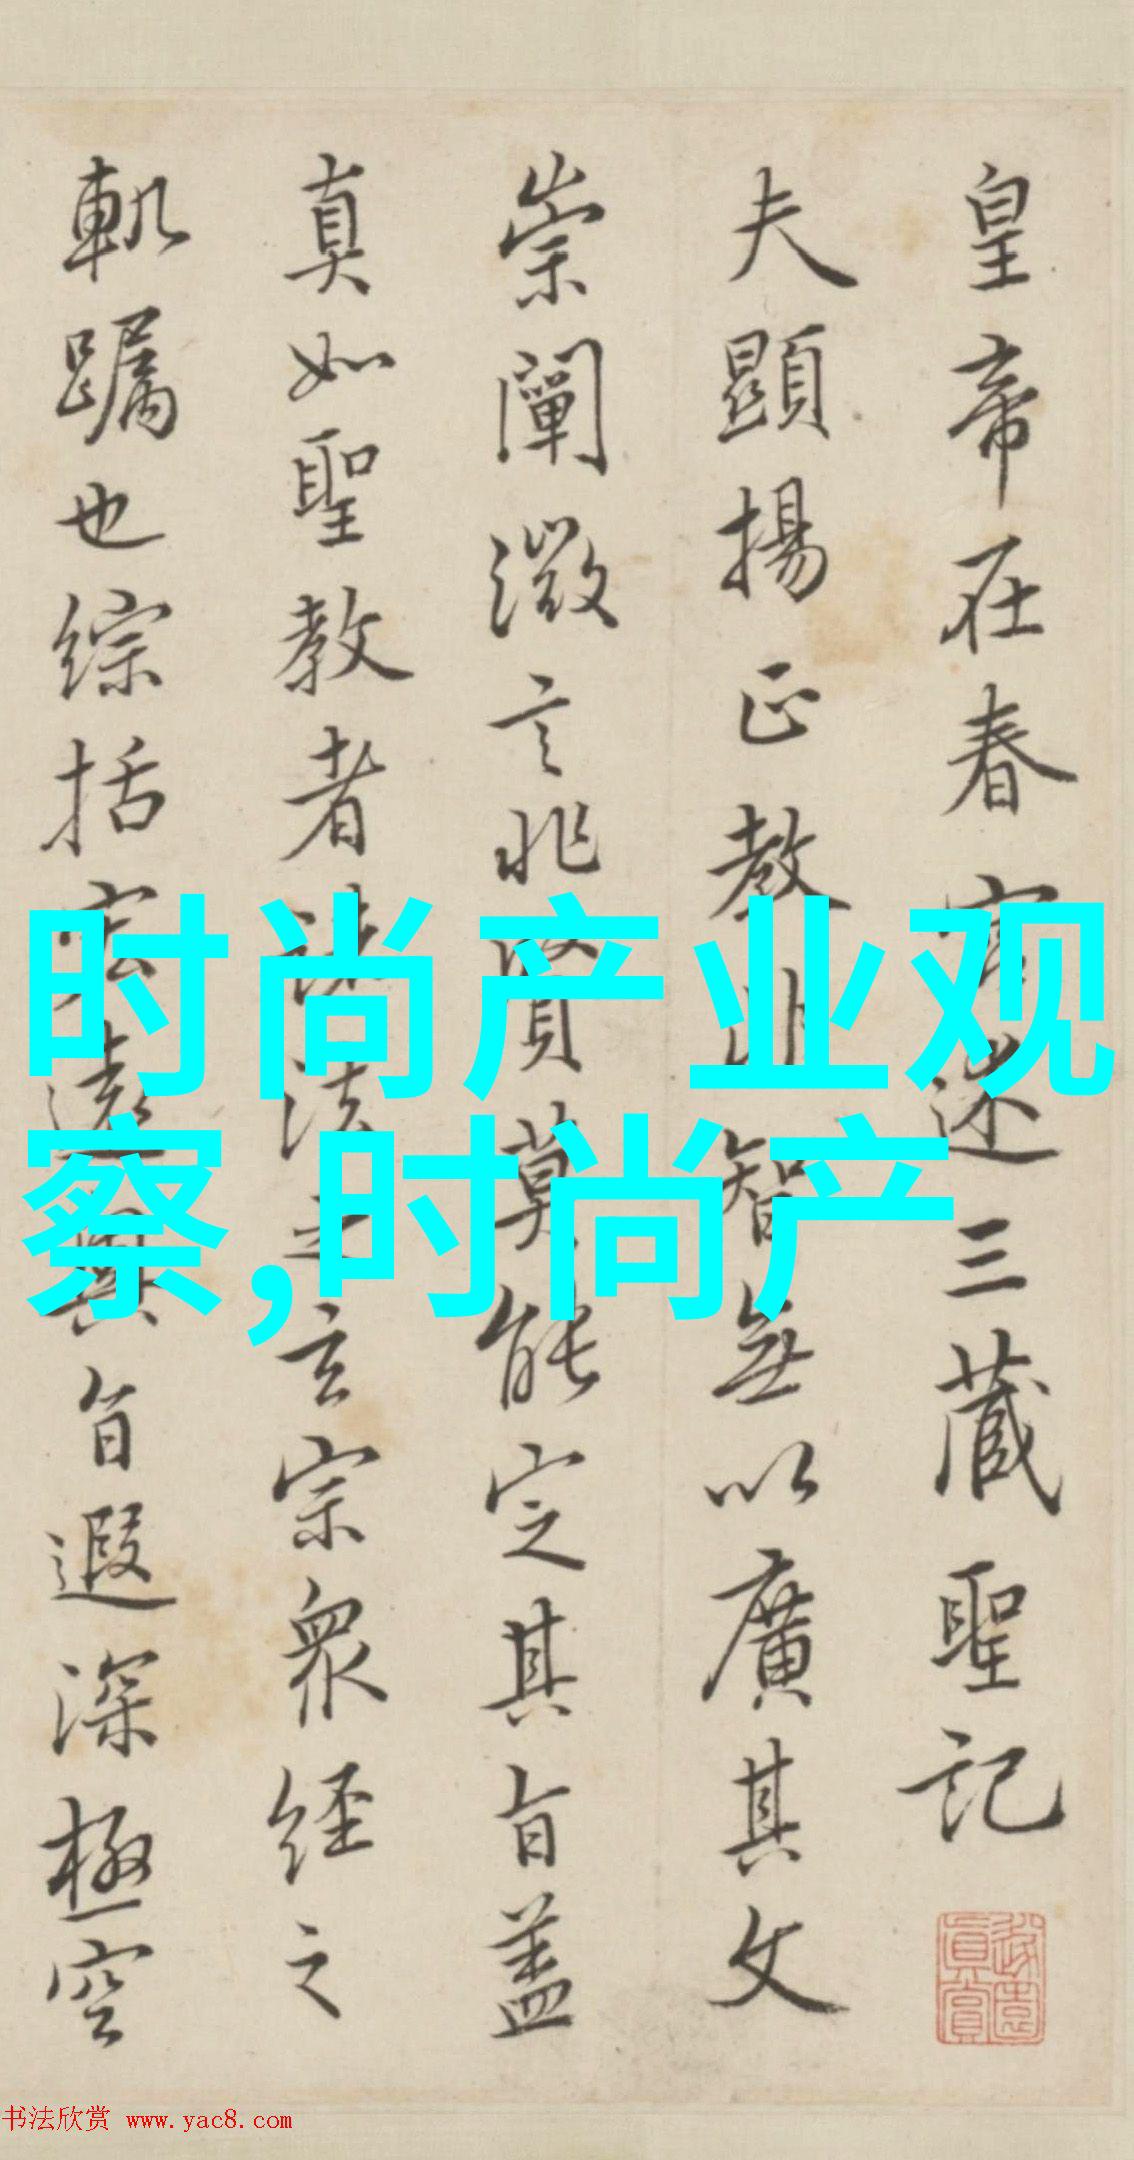 皇帝在春宮述三藏聖記
夫顯揚正教非智無以廣其文
崇闡微言非賢莫能定其旨蓋
真如聖教者諸法之玄宗衆經之
軌躅也綜括宏遠奧旨遐深極空
时尚产业观
察,时尚产
书法欣赏 www.yac8.com